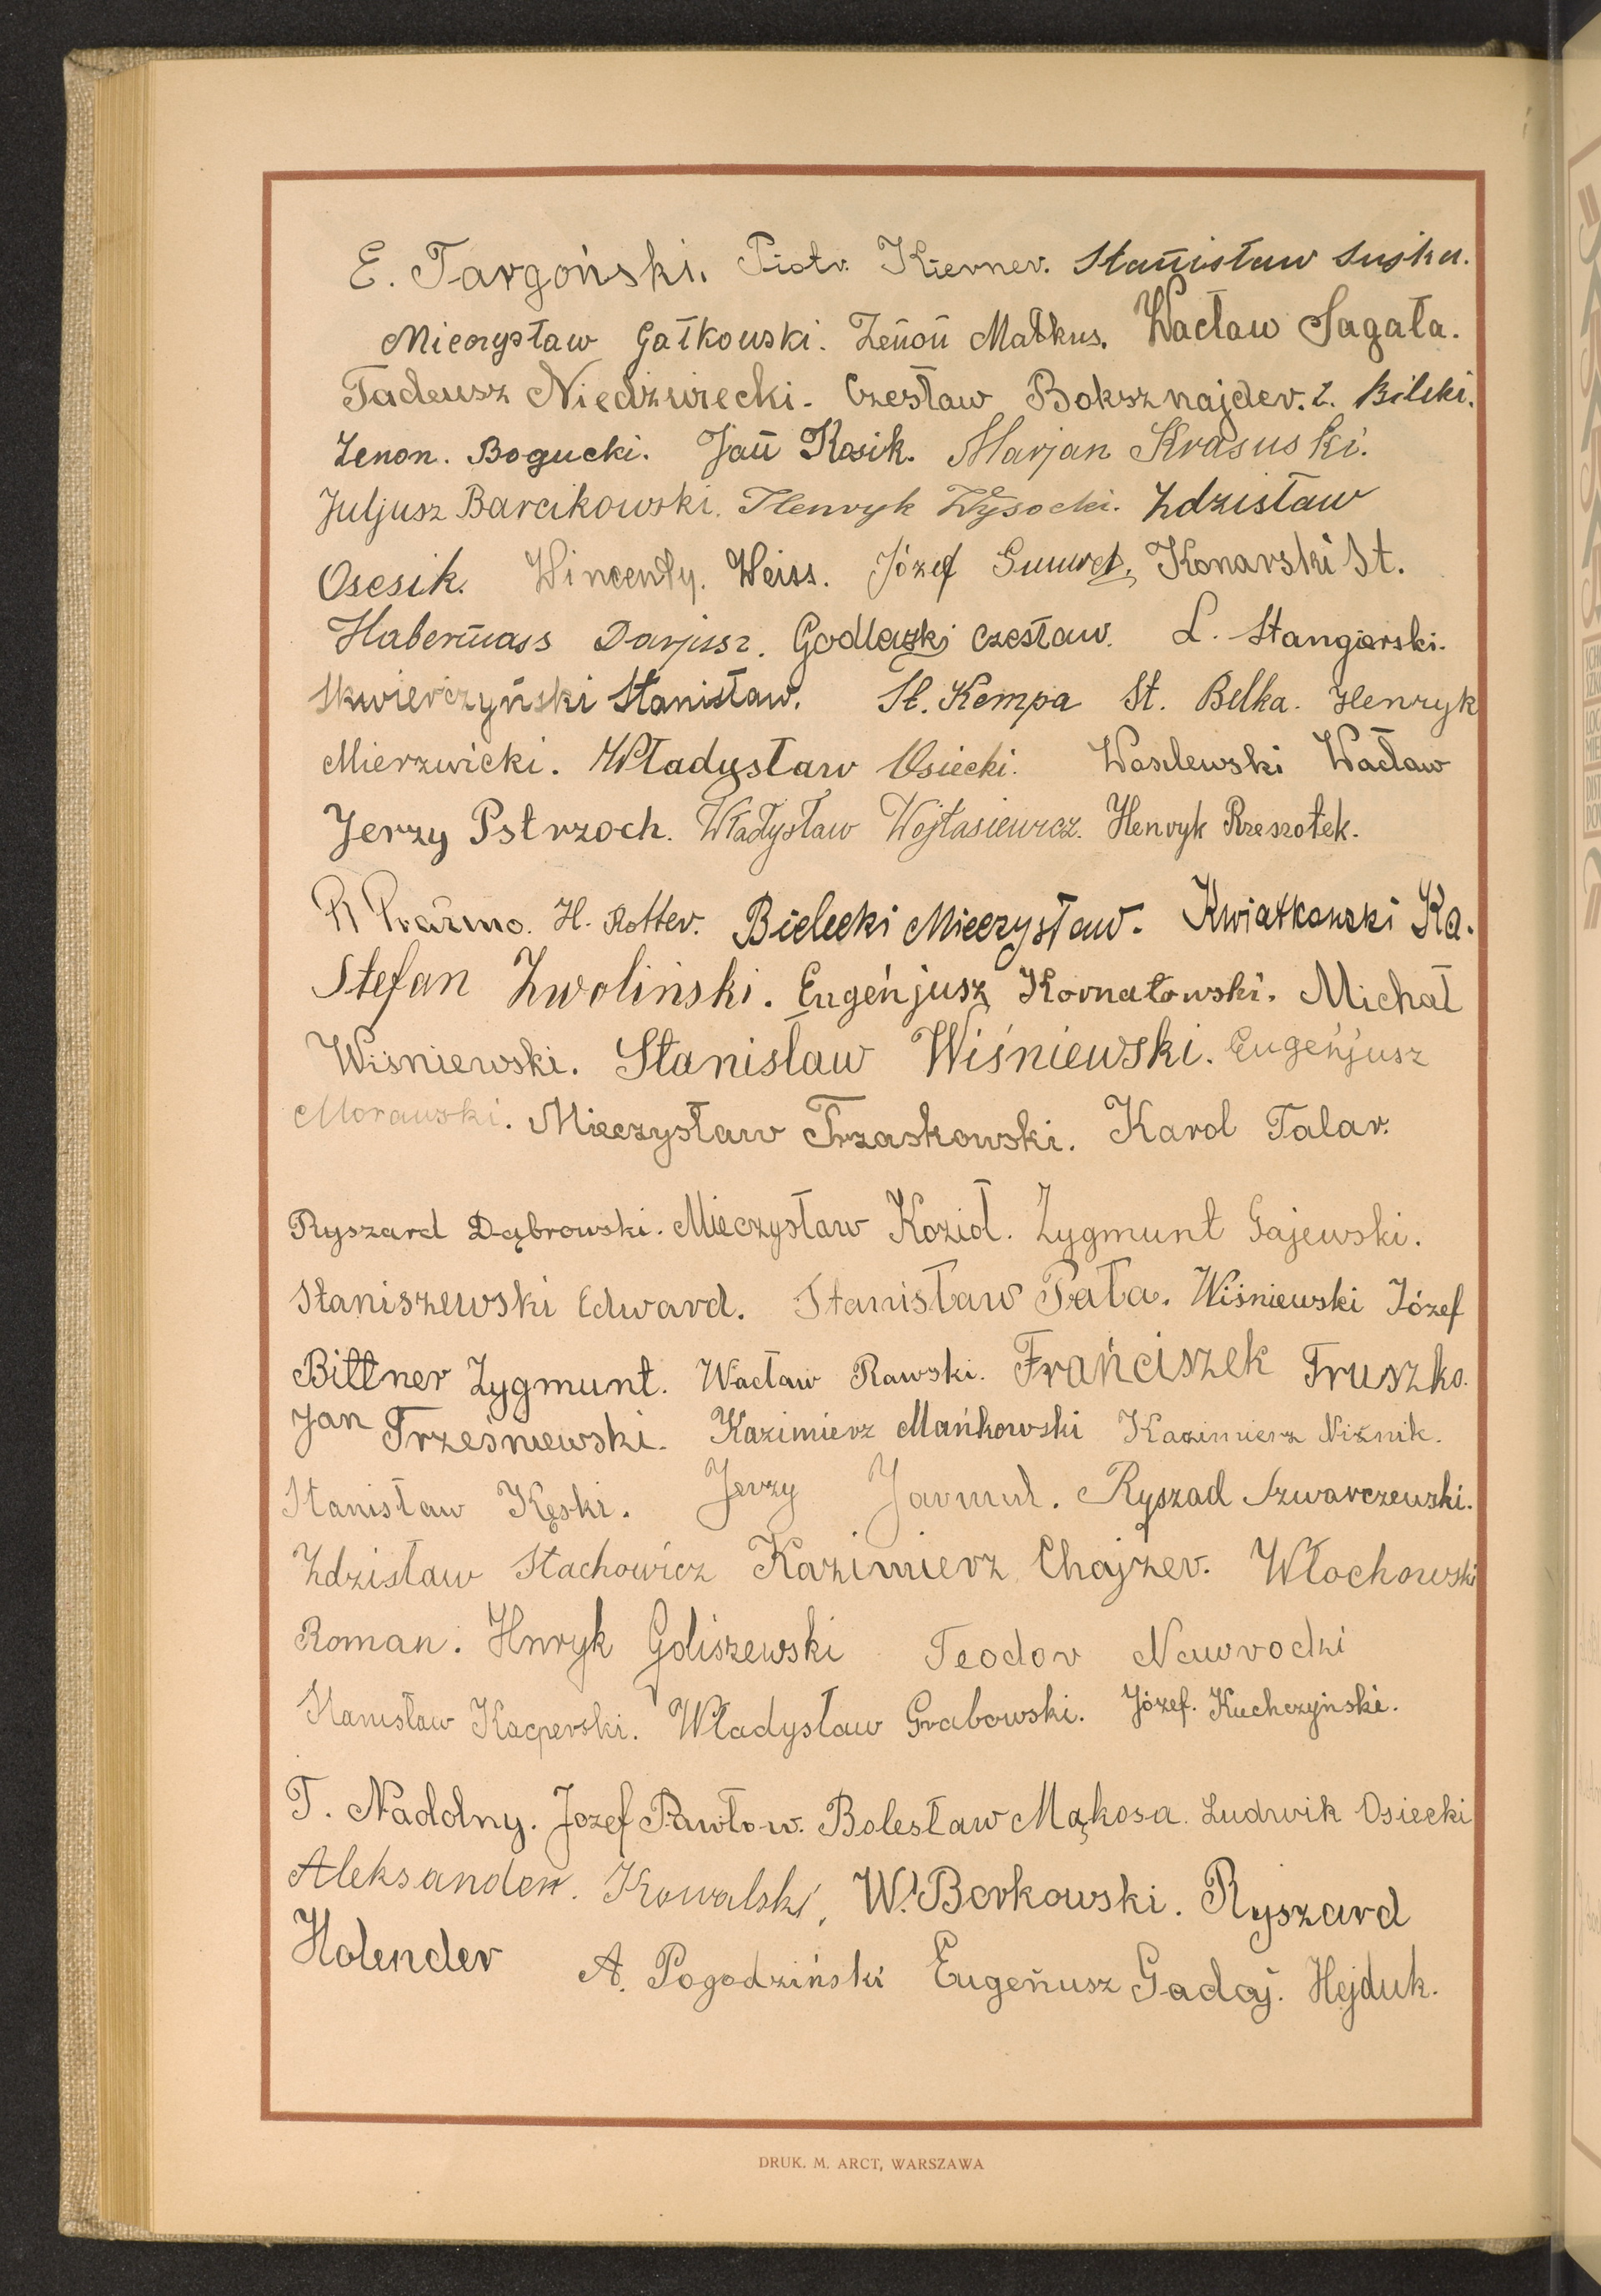 E. Targoński. Piotr Kierner. Stanisław Suska.
Mieczysław Gałkowski. Zenon Małkus. Wacław Sagała.
Tadeusz Niedźwiecki. Czesław Boksznajder. Z. Bilski.
Zenon. Bogucki. Jan Kosik. Marjan Krasuski.
Juljusz Barcikowski. Henryk Wysocki. Zdzisław
Osesik. Wincenty. Weiss. Józef Konarski St.
Habermass Darjusz. Godlewski Czesław. L. Stangierski.
Skwierczyński Stanisław. St. Kempa St. Belka. Henryk
Mierzwicki. Władysław Osiecki. Wasilewski Wacław
Jerzy Pstrzoch. Władysław Wojtasiewicz. Henryk Rzeszotek.
H. Rotter. Bielecki Mieczysław. Kwiatkowski Ka.
Stefan Zwoliński. Eugeńjusz Kornatowski. Michał
Wiśniewski. Stanisław Wiśniewski. Eugeńjusz
Morawski. Mieczysław Trzaskowski. Karol Talar.
Ryszard Dąbrowski. Mieczysław Kozioł. Zygmunt Gajewski.
Staniszewski Edward. Stanisław Pała. Wiśniewski Józef
Bittner Zygmunt. Wacław Rawski. Frańciszek Truszko.
Jan Trześniewski. Kazimierz Mańkowski Kazimierz Niżnik.
Stanisław Kęski. Jerzy Jarmuł. Ryszad Szwarczewski.
Zdzisław Stachowicz Kazimierz Chajzer. Włochowski
Roman. Hnryk Goliszewski Teodor Nawrodzki
Stanisław Kacperski. Władysław Grabowski. Józef. Kuchczyński.
T. Nadolny. Jozef Pawłow. Bolesław Mąkosa. Ludwik Osiecki
Aleksander. Kowalski, W. Borkowski. Ryszard
Holender A. Pogodziński Eugeńusz Gadaj. Hejduk.
DRUK. M. ARCT, WARSZAWA